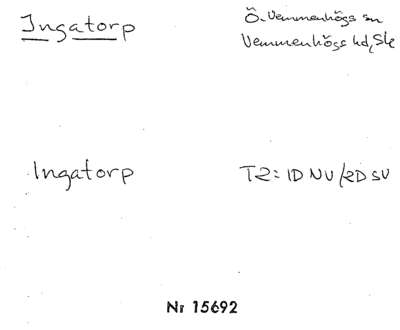 Ingatorp
Ö. Vemmenhögs sn
Vemmenhögs hd, Sk
Ingatorp
T2=1D NV/2D SV
Nr 15692